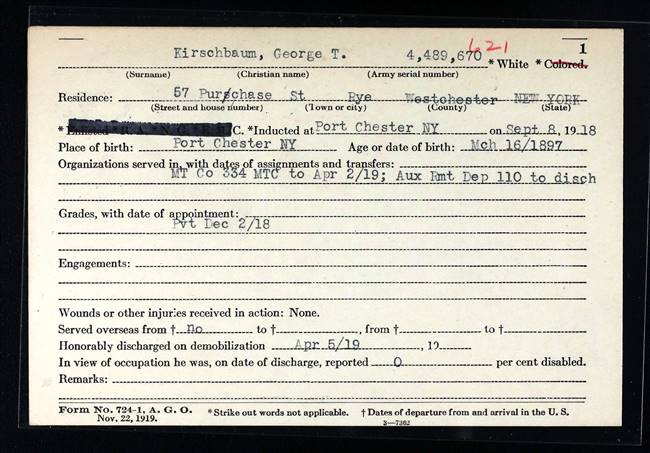 621
Kirschbaum, George T. 4,489,670 * White * Colored. 1
(Surname) (Christian name) (Army serial number)
Residence: 57 Purschase St Rye Westchester NEW YORK
(Street and house number) (Town or city) (County) (State)
* Enlisted R. A. N. G. E. R. C. *Inducted at Port Chester NY on Sept 8, 1918
Place of birth: Port Chester NY Age or date of birth: Mch 16/1897
Organizations served in, with dates of assignments and transfers:
MT Co 334 MTC to Apr 2/19; Aux Rmt Dep 110 to disch
Grades, with date of appointment:
Pvt Dec 2/18
Engagements:
Wounds or other injuries received in action: None.
Served overseas from † no to †, from † to †
Honorably discharged on demobilization Apr 5/19, 19
In view of occupation he was, on date of discharge, reported 0 per cent disabled.
Remarks:
Form No. 724-1, A. G. O. *Strike out words not applicable. † Dates of departure from and arrival in the U. S.
Nov. 22, 1919. 3—7302